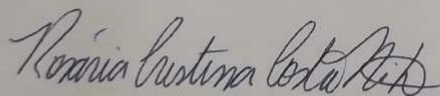 Rosária Cristina Costa